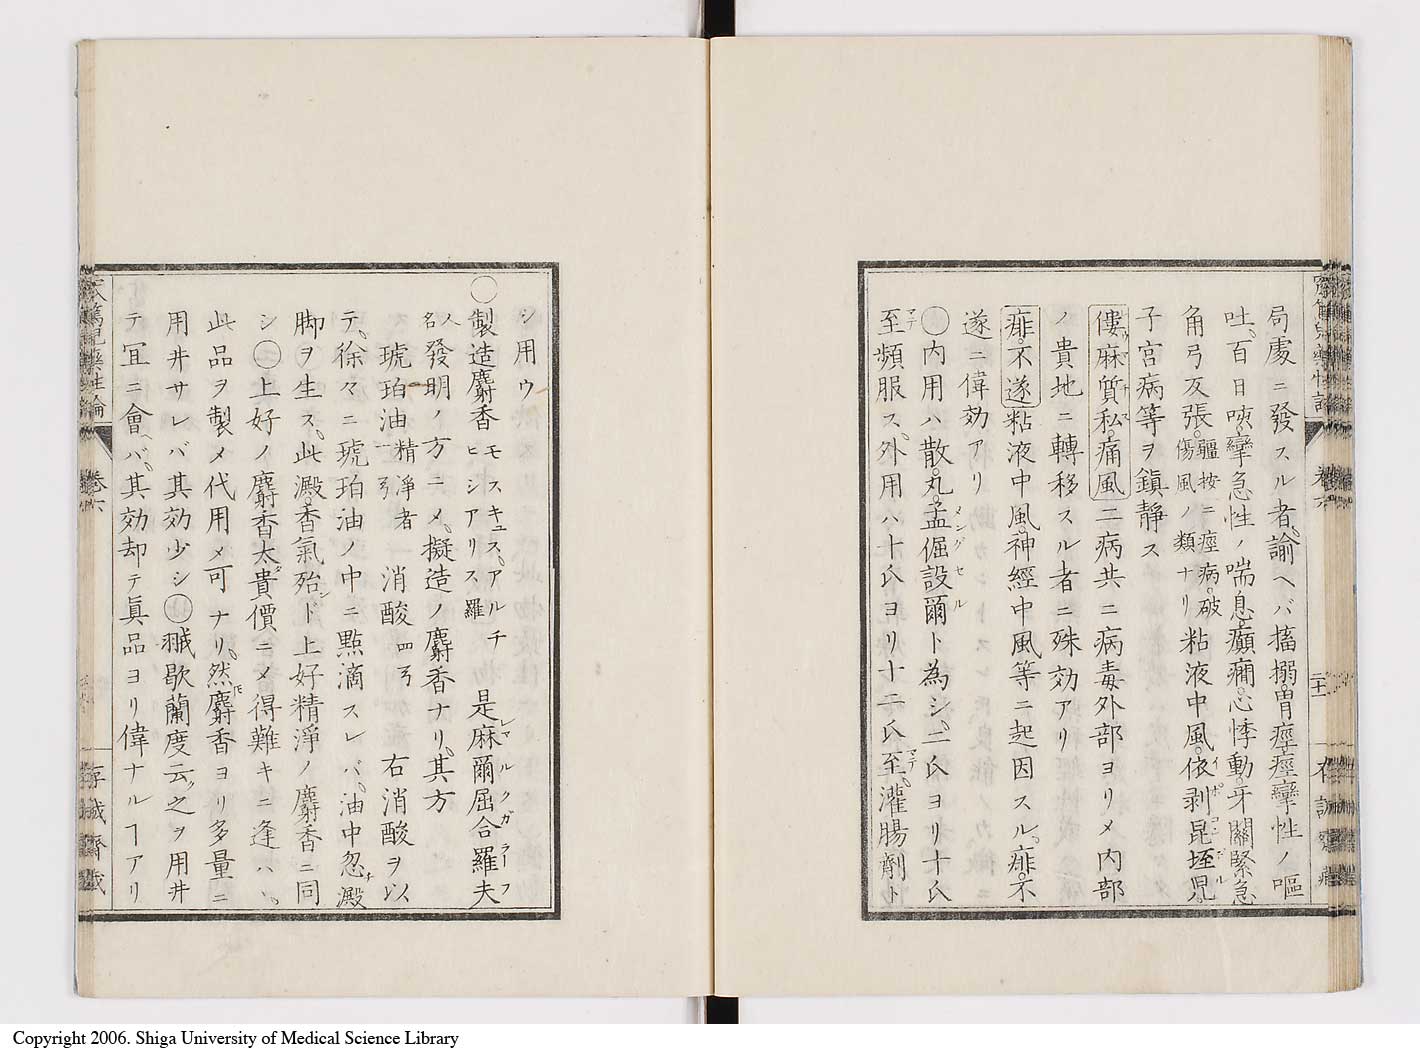 局處ニ發スル者諭ヘバ搐搦胃痙痙攣性ノ嘔
吐百日咳攣急性ノ喘息癲癇心悸動牙關緊急
角弓反張軀按ニ痙病破傷風ノ類ナリ粘液中風依剥昆垤児
子宮病等ヲ鎮静ス
僂麻質私痛風二病共ニ病毒外部ヨリメ内部
ノ貴地ニ轉移スル者ニ殊効アリ
痱不遂粘液中風神經中風等ニ起因スル痱不
遂ニ偉効アリ
○内用ハ散丸孟倔設爾ト為シ二氏ヨリ十氏
至頻服ス外用ハ十氏ヨリ十二氏至灌腸劑ト
シ用ウ
○製造麝香モスキュスアルチヒシアリス羅是麻爾屈合羅夫
名人發明ノ方ニメ擬造ノ麝香ナリ其方
琥珀油精浄者一弓消酸四弓右消酸ヲ以
テ徐々ニ琥珀油ノ中ニ點滴スレバ油中忽澱
脚ヲ生ス此澱香氣殆ド上好精浄ノ麝香ニ同
シ○上好ノ麝香太貴價ニメ得難キニ逢ハヽ
此品ヲ製メ代用メ可ナリ然麝香ヨリ多量ニ
用井サレバ其効少シ○搣歇蘭度云之ヲ用井
テ冝ニ會バ其効却テ眞品ヨリ偉ナルヿアリ
卷六
Copyright 2006. Shiga University of Medical Science Library